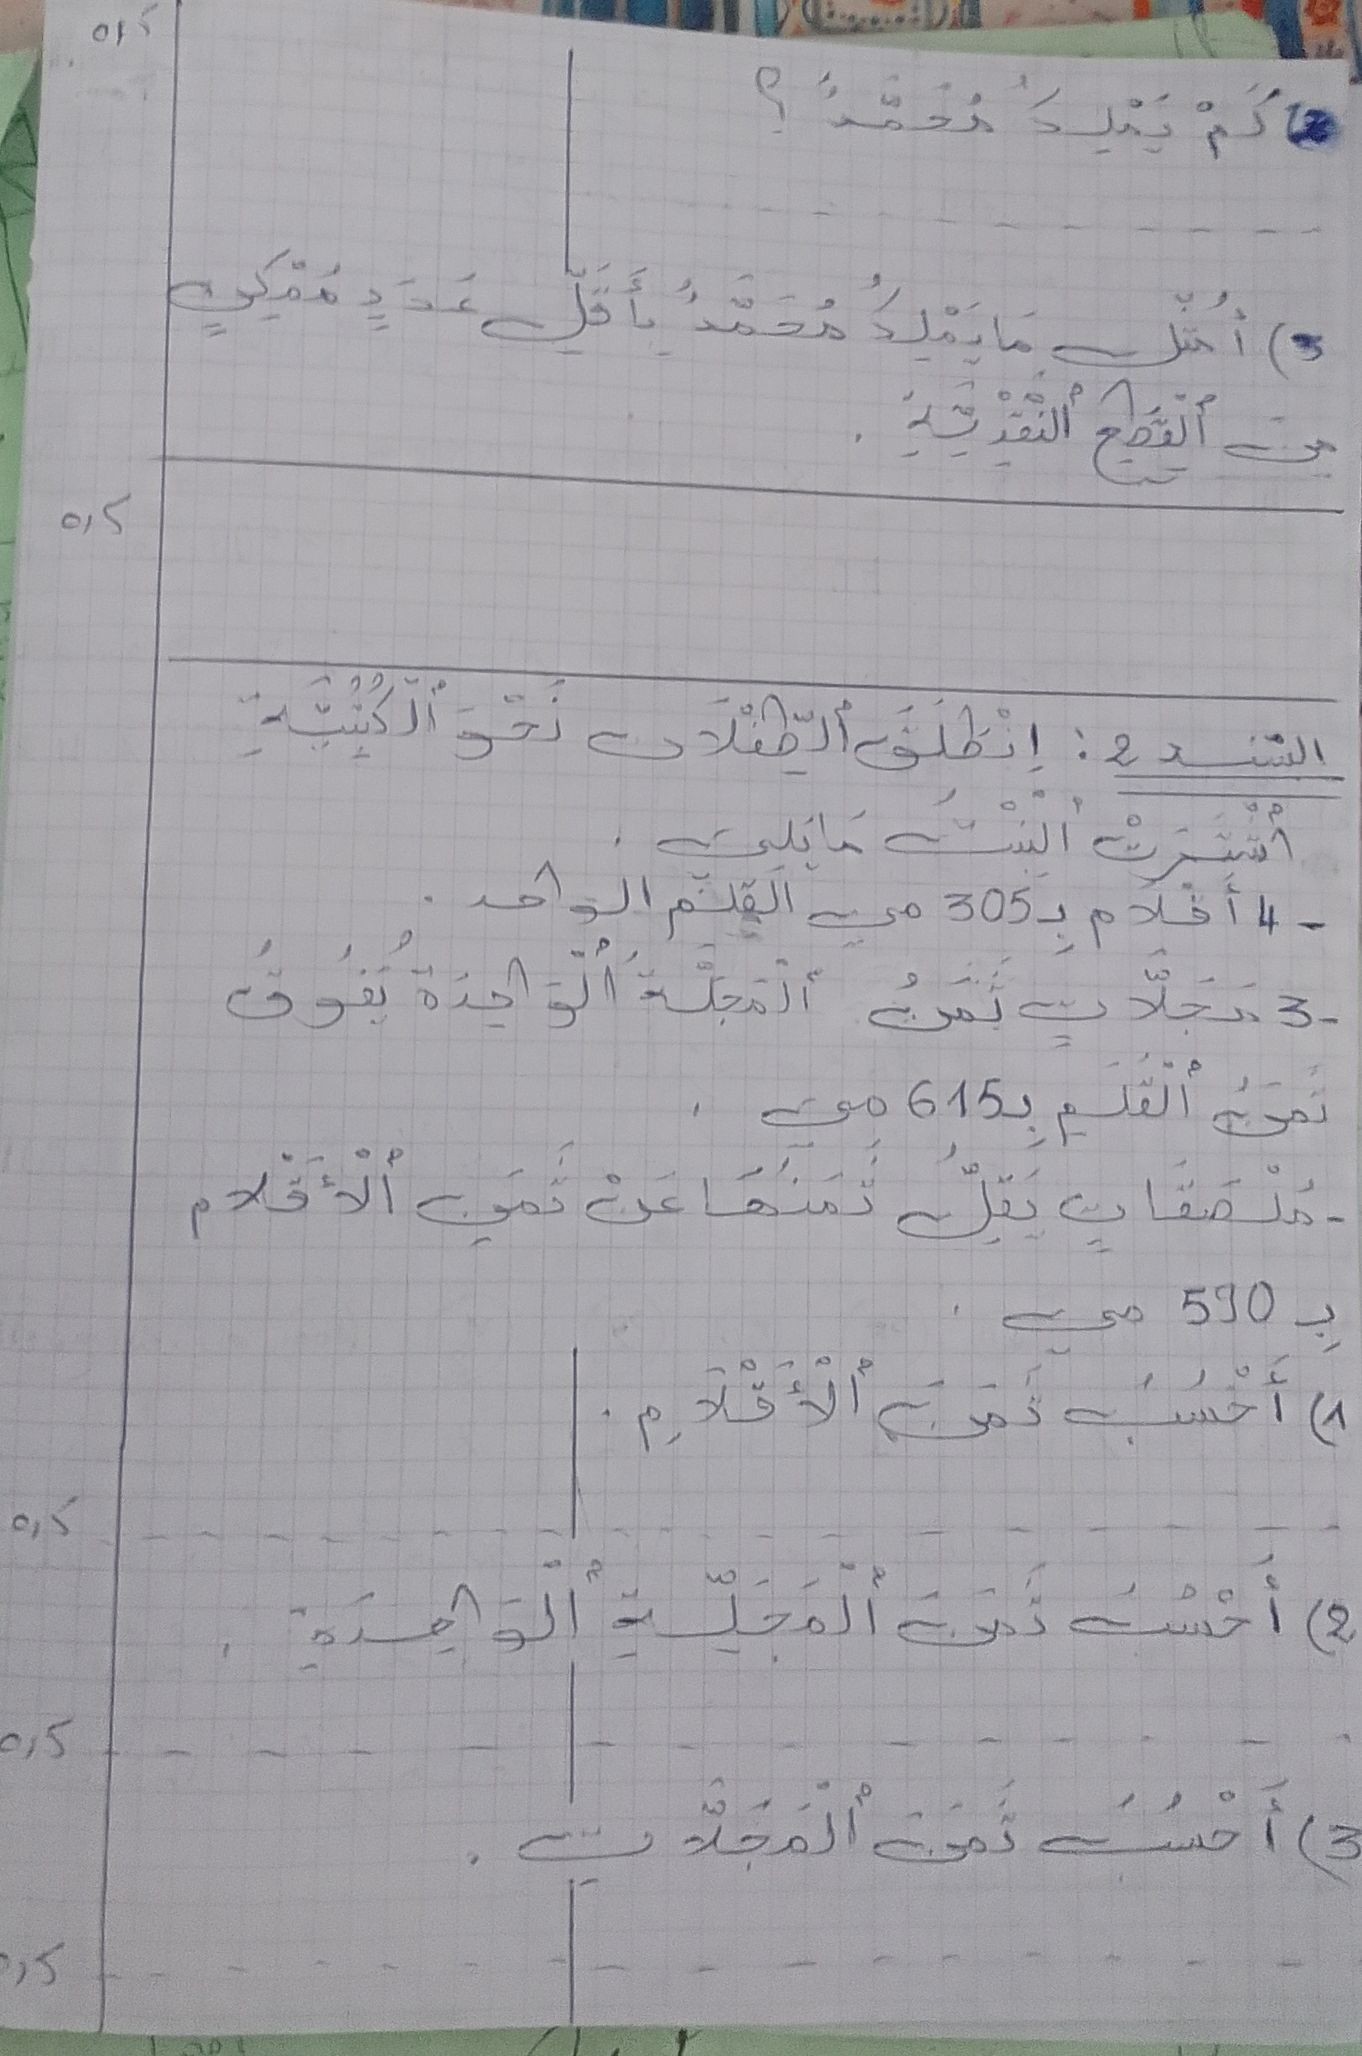 0,5
2) كَمْ يَمْلِكُ مُحَمَّدٌ ؟
3) أُمَثِّلُ مَا يَمْلِكُ مُحَمَّدٌ بِأَقَلِّ عَدَدٍ مُمْكِنٍ
مِنَ ٱلْقِطَعِ ٱلنَّقْدِيَّةِ .
0,5
السّند 2 : اِنْطَلَقَ ٱلطِّفْلَانِ نَحْوَ ٱلْكُتُبِيَّةِ
ٱشْتَرَتْ ٱلْبِنْتُ مَا يَلِي .
- 4 أَقْلَام بِـ 305 مي القلم الواحد .
- 3 مَجَلَّاتٍ ثَمَنُ ٱلْمَجَلَّةُ ٱلْوَاحِدَةُ يَفُوقُ
ثَمَنُ ٱلْقَلَمِ بِـ 615 مي .
- مُلْصَقَاتٍ يَقِلُّ ثَمَنُهَا عَنْ ثَمَنِ ٱلْأَقْلَام
بِـ 590 مي .
1) أَحْسُبُ ثَمَنَ ٱلْأَقْلَامِ .
0,5
2) أَحْسُبُ ثَمَنَ ٱلْمَجَلَّةِ ٱلْوَاحِدَةِ .
0,5
3) أَحْسُبُ ثَمَنَ ٱلْمَجَلَّاتِ .
0,5